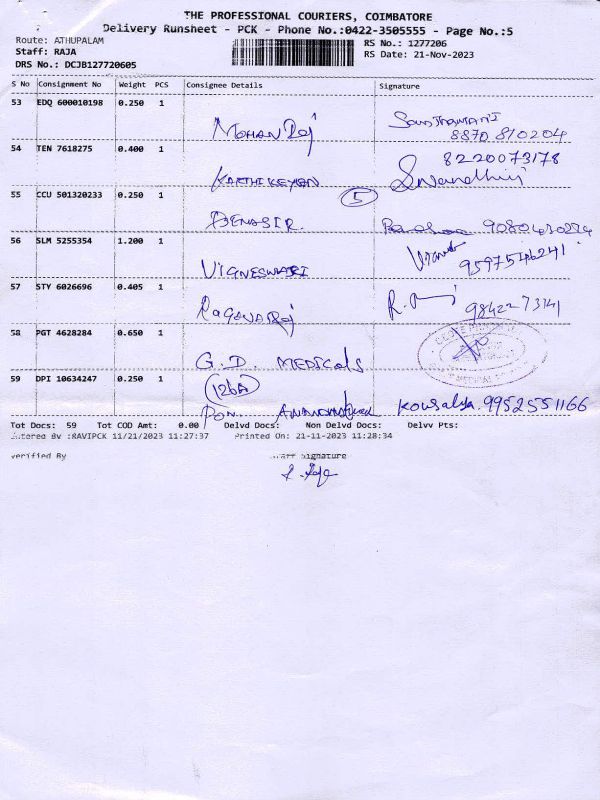 THE PROFESSIONAL COURIERS, COIMBATORE
Delivery Runsheet - PCK - Phone No.:0422-3505555 - Page No.:5
Route: ATHUPALAM
Staff: RAJA
DRS No.: DCJB127720605
RS No.: 1277206
RS Date: 21-Nov-2023
S No Consignment No Weight PCS Consignee Details Signature
53 EDQ 600010198 0.250 1
Mohan Raj
8870 810204
54 TEN 7618275 0.400 1
8220073178
KARTHIKEYAN
55 CCU 501320233 0.250 1
5
BENASIR.
56 SLM 5255354 1.200 1
VIGNESWARI
57 STY 6026696 0.405 1
58 PGT 4628284 0.650 1
G.D. MEDICALS
59 DPI 10634247 0.250 1
126A
PON. Kowsalya. 9952551166
Tot Docs: 59 Tot COD Amt: 0.00 Delvd Docs: Non Delvd Docs: Delvv Pts:
Entered By :RAVIPCK 11/21/2023 11:27:37 Printed On: 21-11-2023 11:28:34
Verified By Staff Signature